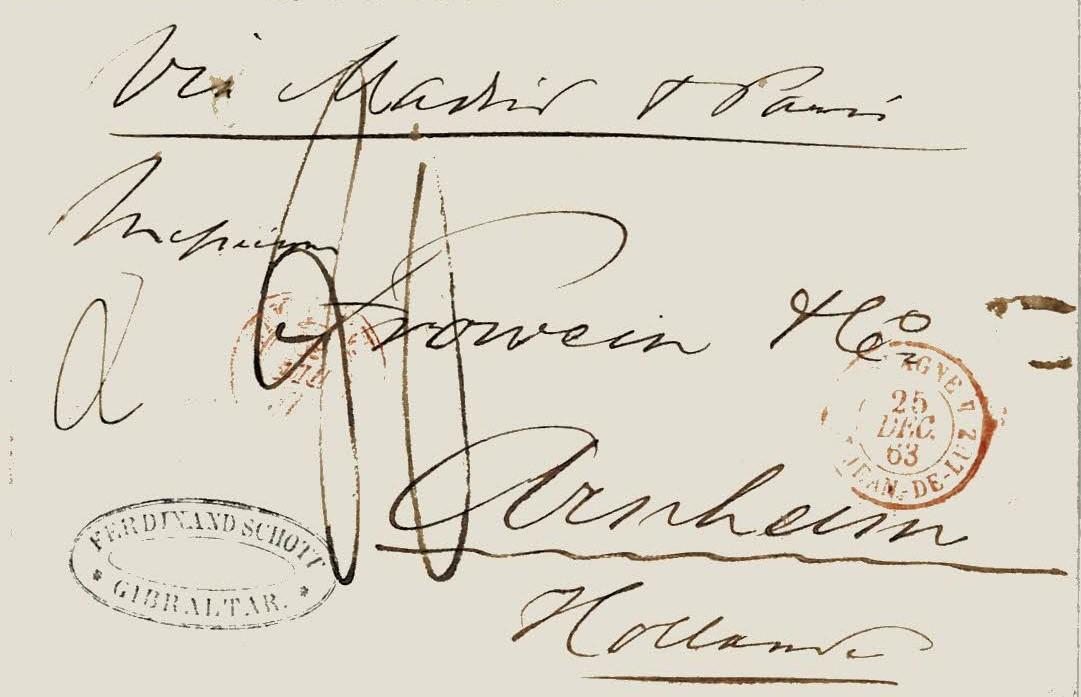 Via Madrid & Paris
Messieurs
à Frowein & Co
Arnheim
Holland
ESPAGNE
25
DEC.
63
ST JEAN-DE-LUZ
FERDINAND SCHOTT
* GIBRALTAR. *